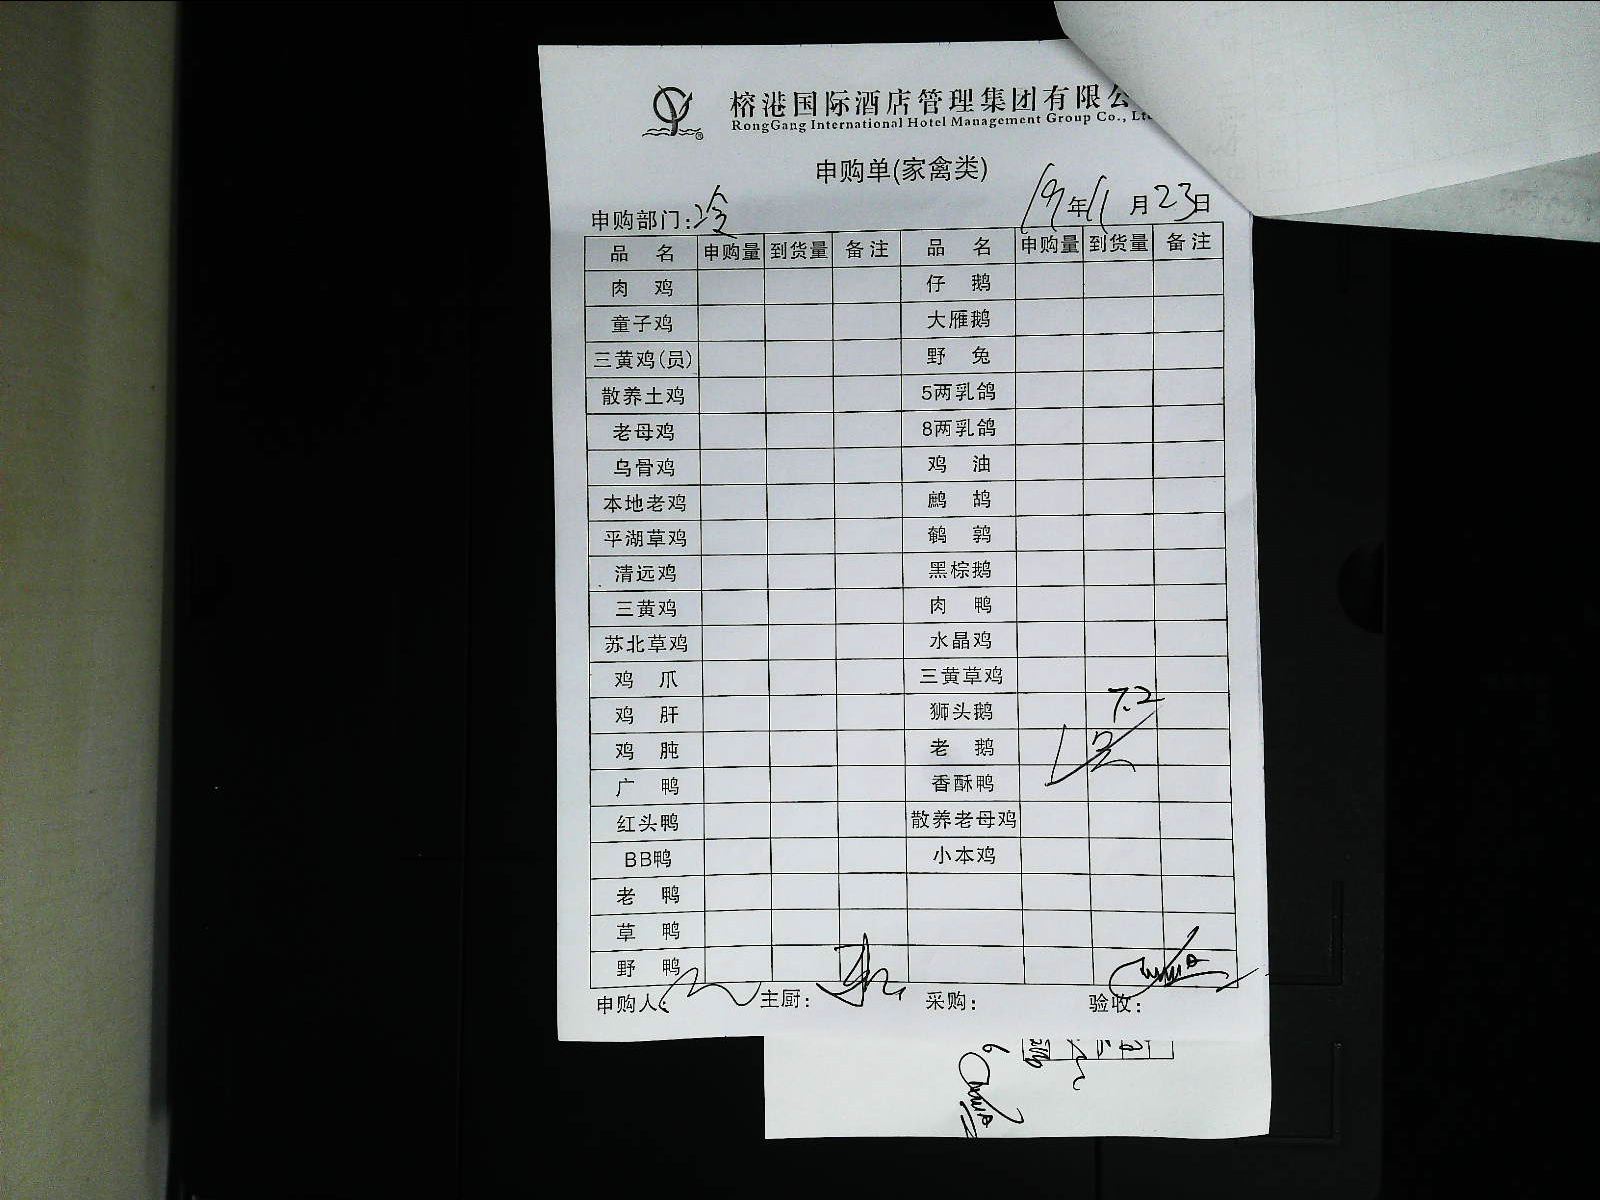 榕港国际酒店管理集团有限公
RongGang International Hotel Management Group Co., Lt
申购单(家禽类)
申购部门:冷 19年11月23日
品名 申购量 到货量 备注 品名 申购量 到货量 备注
肉鸡 仔鹅
童子鸡 大雁鹅
三黄鸡(员) 野兔
散养土鸡 5两乳鸽
老母鸡 8两乳鸽
乌骨鸡 鸡油
本地老鸡 鹧鸪
平湖草鸡 鹌鹑
清远鸡 黑棕鹅
三黄鸡 肉鸭
苏北草鸡 水晶鸡
鸡爪 三黄草鸡
鸡肝 狮头鹅 7.2
鸡肫 老鹅
广鸭 香酥鸭
红头鸭 散养老母鸡
BB鸭 小本鸡
老鸭
草鸭
野鸭
申购人: 主厨: 采购: 验收:
6